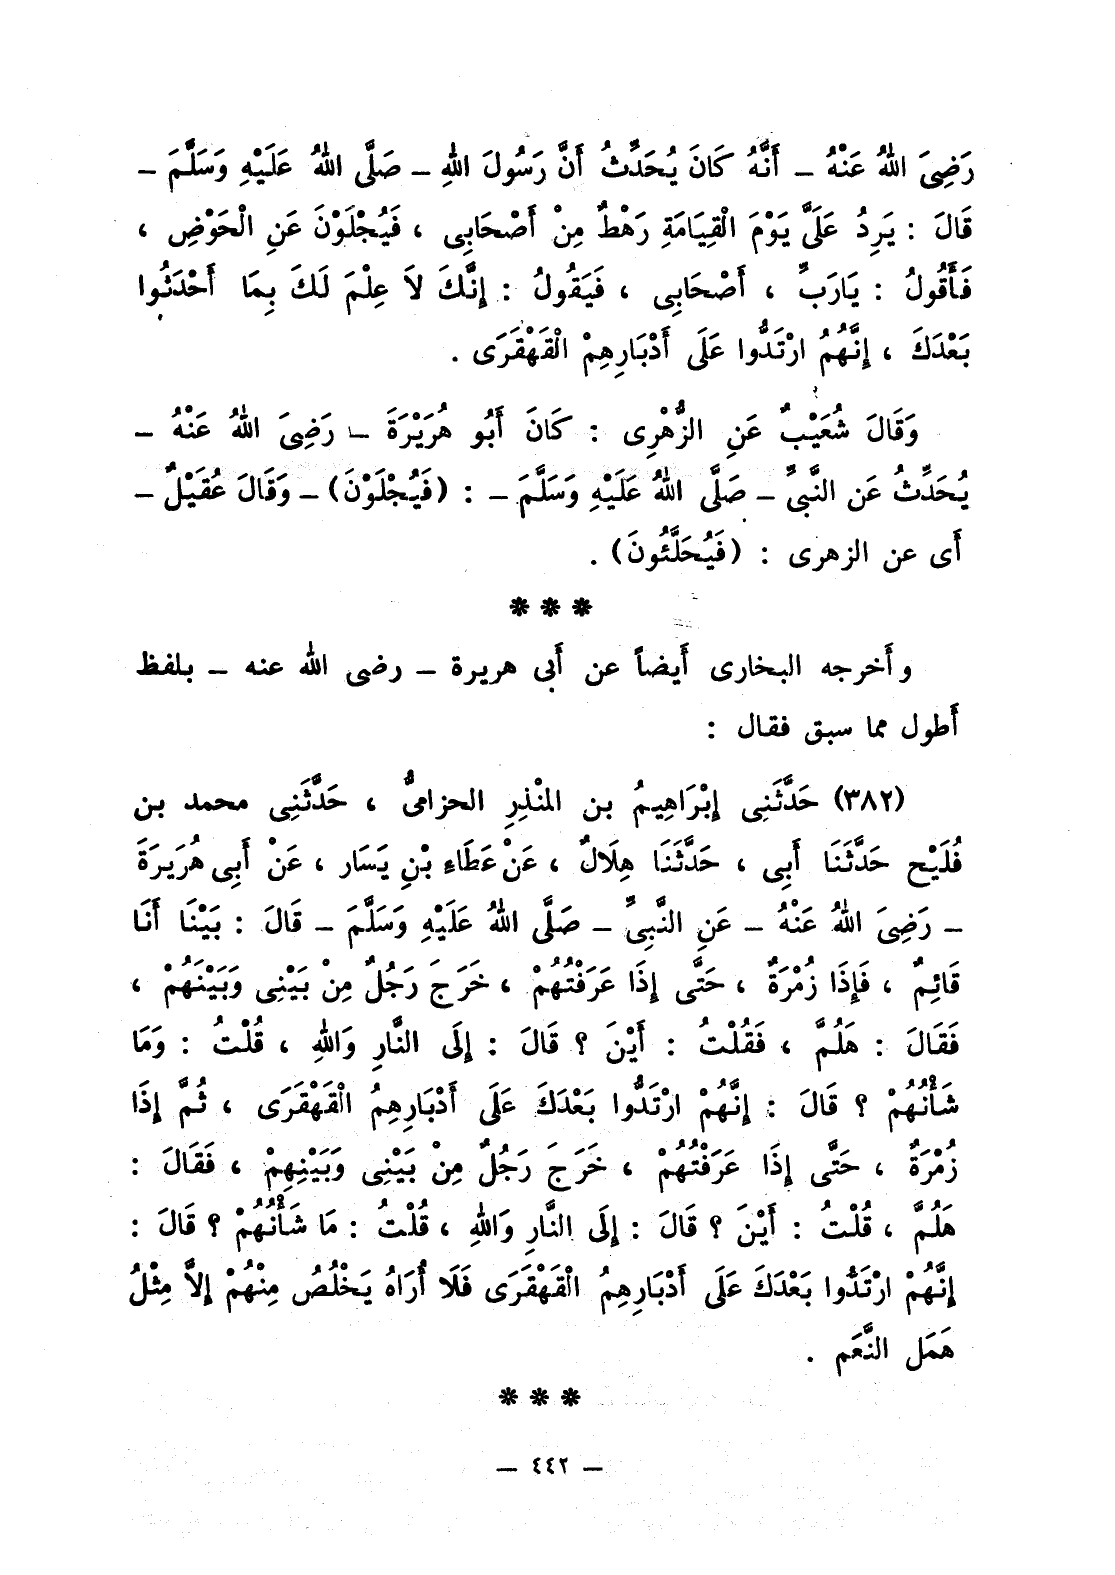 رَضِىَ اللهُ عَنْهُ – أَنَّهُ كَانَ يُحَدِّثُ أَنَّ رَسُولَ اللهِ – صَلَّى اللهُ عَلَيْهِ وَسَلَّمَ –
قَالَ : يَرِدُ عَلَىَّ يَوْمَ الْقِيَامَةِ رَهْطٌ مِنْ أَصْحَابِى ، فَيُجْلَوْنَ عَنِ الْحَوْضِ ،
فَأَقُولُ : يَارَبِّ ، أَصْحَابِى ، فَيَقُولُ : إِنَّكَ لاَ عِلْمَ لَكَ بِمَا أَحْدَثُوا
بَعْدَكَ ، إِنَّهُمُ ارْتَدُّوا عَلَى أَدْبَارِهِمْ الْقَهْقَرَى .
وَقَالَ شُعَيْبٌ عَنِ الزُّهْرِى : كَانَ أَبُو هُرَيْرَةَ – رَضِىَ اللهُ عَنْهُ –
يُحَدِّثُ عَنِ النَّبِىِّ – صَلَّى اللهُ عَلَيْهِ وَسَلَّمَ – : (فَيُجْلَوْنَ) – وَقَالَ عُقَيْلٌ –
أَى عن الزهرى : (فَيُحَلَّئُونَ) .
❋ ❋ ❋
وأَخرجه البخارى أَيضاً عن أَبى هريرة – رضى الله عنه – بلفظ
أَطول مما سبق فقال :
(٣٨٢) حَدَّثَنِى إِبْرَاهِيمُ بن المنْذِرِ الحزامىُّ ، حَدَّثَنِى محمد بن
فُلَيْح حَدَّثَنَا أَبِى ، حَدَّثَنَا هِلَالٌ ، عَنْ عَطَاءِ بْنِ يَسَار ، عَنْ أَبِى هُرَيرَةَ
– رَضِىَ اللهُ عَنْهُ – عَنِ النَّبِىِّ – صَلَّى اللهُ عَلَيْهِ وَسَلَّمَ – قَالَ : بَيْنَا أَنَا
قَائِمٌ ، فَإِذَا زُمْرَةٌ ، حَتَّى إِذَا عَرَفْتُهُمْ ، خَرَجَ رَجُلٌ مِنْ بَيْنِى وَبَيْنَهُمْ ،
فَقَالَ : هَلُمَّ ، فَقُلْتُ : أَيْنَ ؟ قَالَ : إِلَى النَّارِ وَاللهِ ، قُلْتُ : وَمَا
شَأْنُهُمْ ؟ قَالَ : إِنَّهُمْ ارْتَدُّوا بَعْدَكَ عَلَى أَدْبَارِهِمُ الْقَهْقَرَى ، ثُمَّ إِذَا
زُمْرَةٌ ، حَتَّى إِذَا عَرَفْتُهُمْ ، خَرَجَ رَجُلٌ مِنْ بَيْنِى وَبَيْنِهِمْ ، فَقَالَ :
هَلُمَّ ، قُلْتُ : أَيْنَ ؟ قَالَ : إِلَى النَّارِ وَاللهِ ، قُلْتُ : مَا شَأْنُهُمْ ؟ قَالَ :
إِنَّهُمْ ارْتَدُّوا بَعْدَكَ عَلَى أَدْبَارِهِمُ الْقَهْقَرَى فَلَا أُرَاهُ يَخْلُصُ مِنْهُمْ إِلاَّ مِثْلُ
هَمَل النَّعَم .
❋ ❋ ❋
– ٤٤٢ –